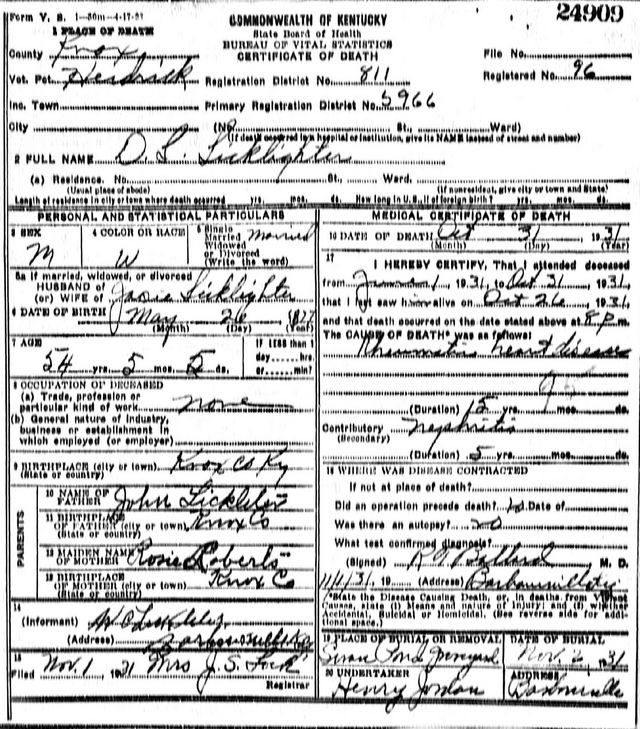 Form V. S. 1—50m—4-17-29
24909
COMMONWEALTH OF KENTUCKY
State Board of Health
BUREAU OF VITAL STATISTICS
CERTIFICATE OF DEATH
1 PLACE OF DEATH
County Knox
Vot. Pct. Hendrick
Inc. Town
City
Registration District No. 811
Primary Registration District No. 5966
File No.
Registered No. 96
(No. St., Ward)
(If death occurred in a hospital or institution, give its NAME instead of street and number)
2 FULL NAME D. L. Licklighter
(a) Residence. No. St., Ward.
(Usual place of abode) (If nonresident, give city or town and State)
Length of residence in city or town where death occurred yrs. mos. ds. How long in U. S., if of foreign birth? yrs. mos. ds.
PERSONAL AND STATISTICAL PARTICULARS
3 SEX M
4 COLOR OR RACE W
5 Single Married Widowed or Divorced (Write the word) Married
5a If married, widowed, or divorced
HUSBAND of
(or) WIFE of Licklighter
6 DATE OF BIRTH May 26
(Month) (Day) (Year)
7 AGE
54 yrs. 5 mos. 5 ds.
IF LESS than 1
day hrs.
or min?
8 OCCUPATION OF DECEASED
(a) Trade, profession or
particular kind of work none
(b) General nature of industry,
business or establishment in
which employed (or employer)
9 BIRTHPLACE (city or town) Knox Co Ky
(State or country)
PARENTS
10 NAME OF
FATHER John
11 BIRTHPLACE
OF FATHER (city or town) Knox Co
(State or country)
12 MAIDEN NAME
OF MOTHER Rosie Roberts
13 BIRTHPLACE
OF MOTHER (city or town) Knox Co
(State or country)
14
(Informant)
(Address) Barbourville Ky
15
Filed Nov. 1 1931 Mrs J. S.
Registrar
MEDICAL CERTIFICATE OF DEATH
16 DATE OF DEATH Oct 31 1931
(Month) (Day) (Year)
17
I HEREBY CERTIFY, That I attended deceased
from June 1 1931, to Oct 31, 1931,
that I last saw him alive on Oct 26, 1931,
and that death occurred on the date stated above at 8 p. m.
The CAUSE OF DEATH* was as follows:
Rheumatic heart disease
(Duration) 15 yrs. mos. ds.
Contributory Nephritis
(Secondary)
(Duration) 5 yrs. mos. ds.
18 WHERE WAS DISEASE CONTRACTED
If not at place of death?
Did an operation precede death? no Date of
Was there an autopsy? no
What test confirmed diagnosis?
(Signed) M. D.
11/1/31, 19 (Address) Barbourville
*State the Disease Causing Death, or, in deaths from Violent
Causes, state (1) Means and nature of Injury; and (2) whether
Accidental, Suicidal or Homicidal. (See reverse side for addi-
tional space.)
19 PLACE OF BURIAL OR REMOVAL
DATE OF BURIAL
Nov. 2, 1931
20 UNDERTAKER
Henry Jordan
ADDRESS
Barbourville